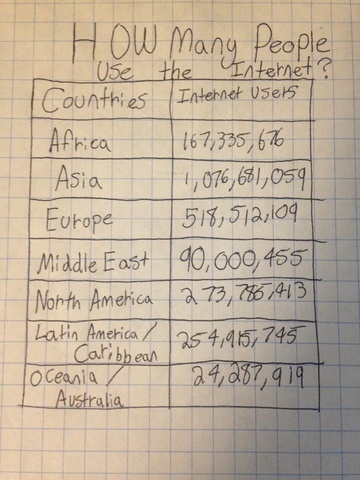 How Many People
Use the Internet?
Countries Internet Users
Africa 167,335,676
Asia 1,076,681,059
Europe 518,512,109
Middle East 90,000,455
North America 273,785,413
Latin America/
Caribbean 254,915,745
Oceania/ 24,287,919
Australia